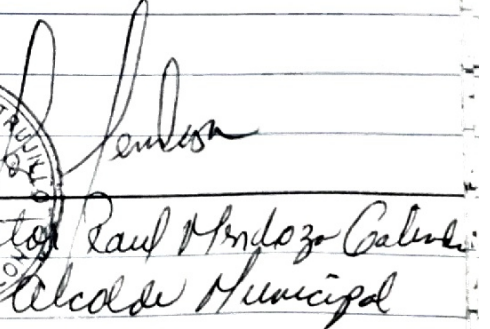 Mendoza
TRUJILLO
Raul Mendoza
Alcalde Municipal